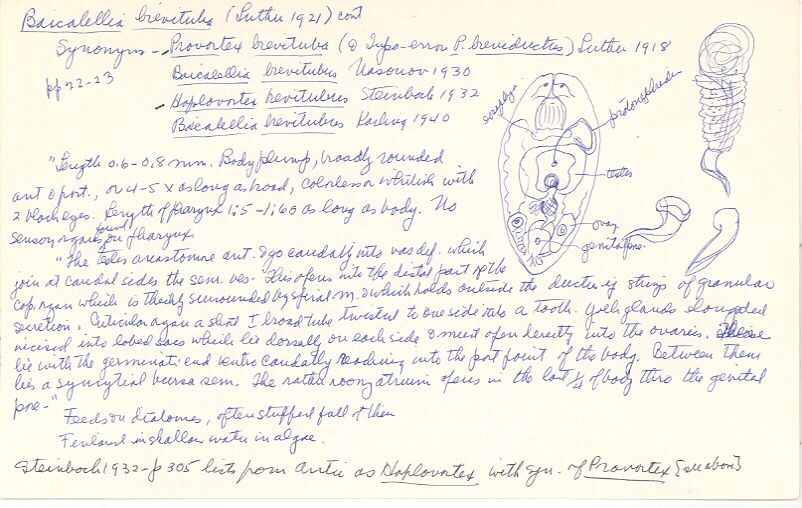 Baicalellia brevituba (Luther 1921) cont
Synonyms - Provortex brevituba (& typo-error P. breviductus) Luther 1918
pp 22-23
Baicalellia brevitubus Nasonov 1930
Haplovortex brevitubus Steinbock 1932
Baicalellia brevitubus Karling 1940
esophagus
protonephridia
testes
ovary
genital pore
"Length 0.6-0.8 mm. Body plump, broadly rounded
ant & post., or 4-5 x as long as broad, colorless or whitish with
2 black eyes. Length of pharynx 1:5 - 1:60 as long as body. No
sensory organs found on pharynx.
"The testes areastome ant. & go caudally into vas def. which
join at caudal sides the sem. ves. This opens into the distal part of the
cop. organ which is thickly surrounded by spiral m. & which holds outside the ductus ej strings of granular
secretion. Cuticular organ a short & broad tube twisted to one side into a tooth. Yolk glands elongated
incised into lobed sacs which lie dorsally on each side & must open directly into the ovaries. These
lie with the germinative end ventro caudally reaching into the post point of the body. Between them
lies a syncytial bursa sem. The rather roomy atrium opens in the last 1/4 of body thro the genital
pore-"
Feeds on diatomes, often stuffed full of them
Fenloud in shallow water in algae.
Steinbock 1932-p 305 lists from Arctic as Haplovortex with syn. of Provortex [see above]